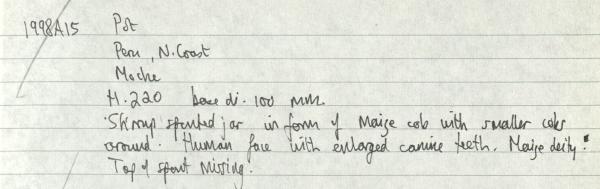 1998A15 Pot
Peru, N. Coast
Moche
H. 220 base di. 100 mm.
Stirrup spouted jar in form of Maize cob with smaller cobs
around. Human face with enlarged canine teeth. Maize deity.
Top of spout missing.